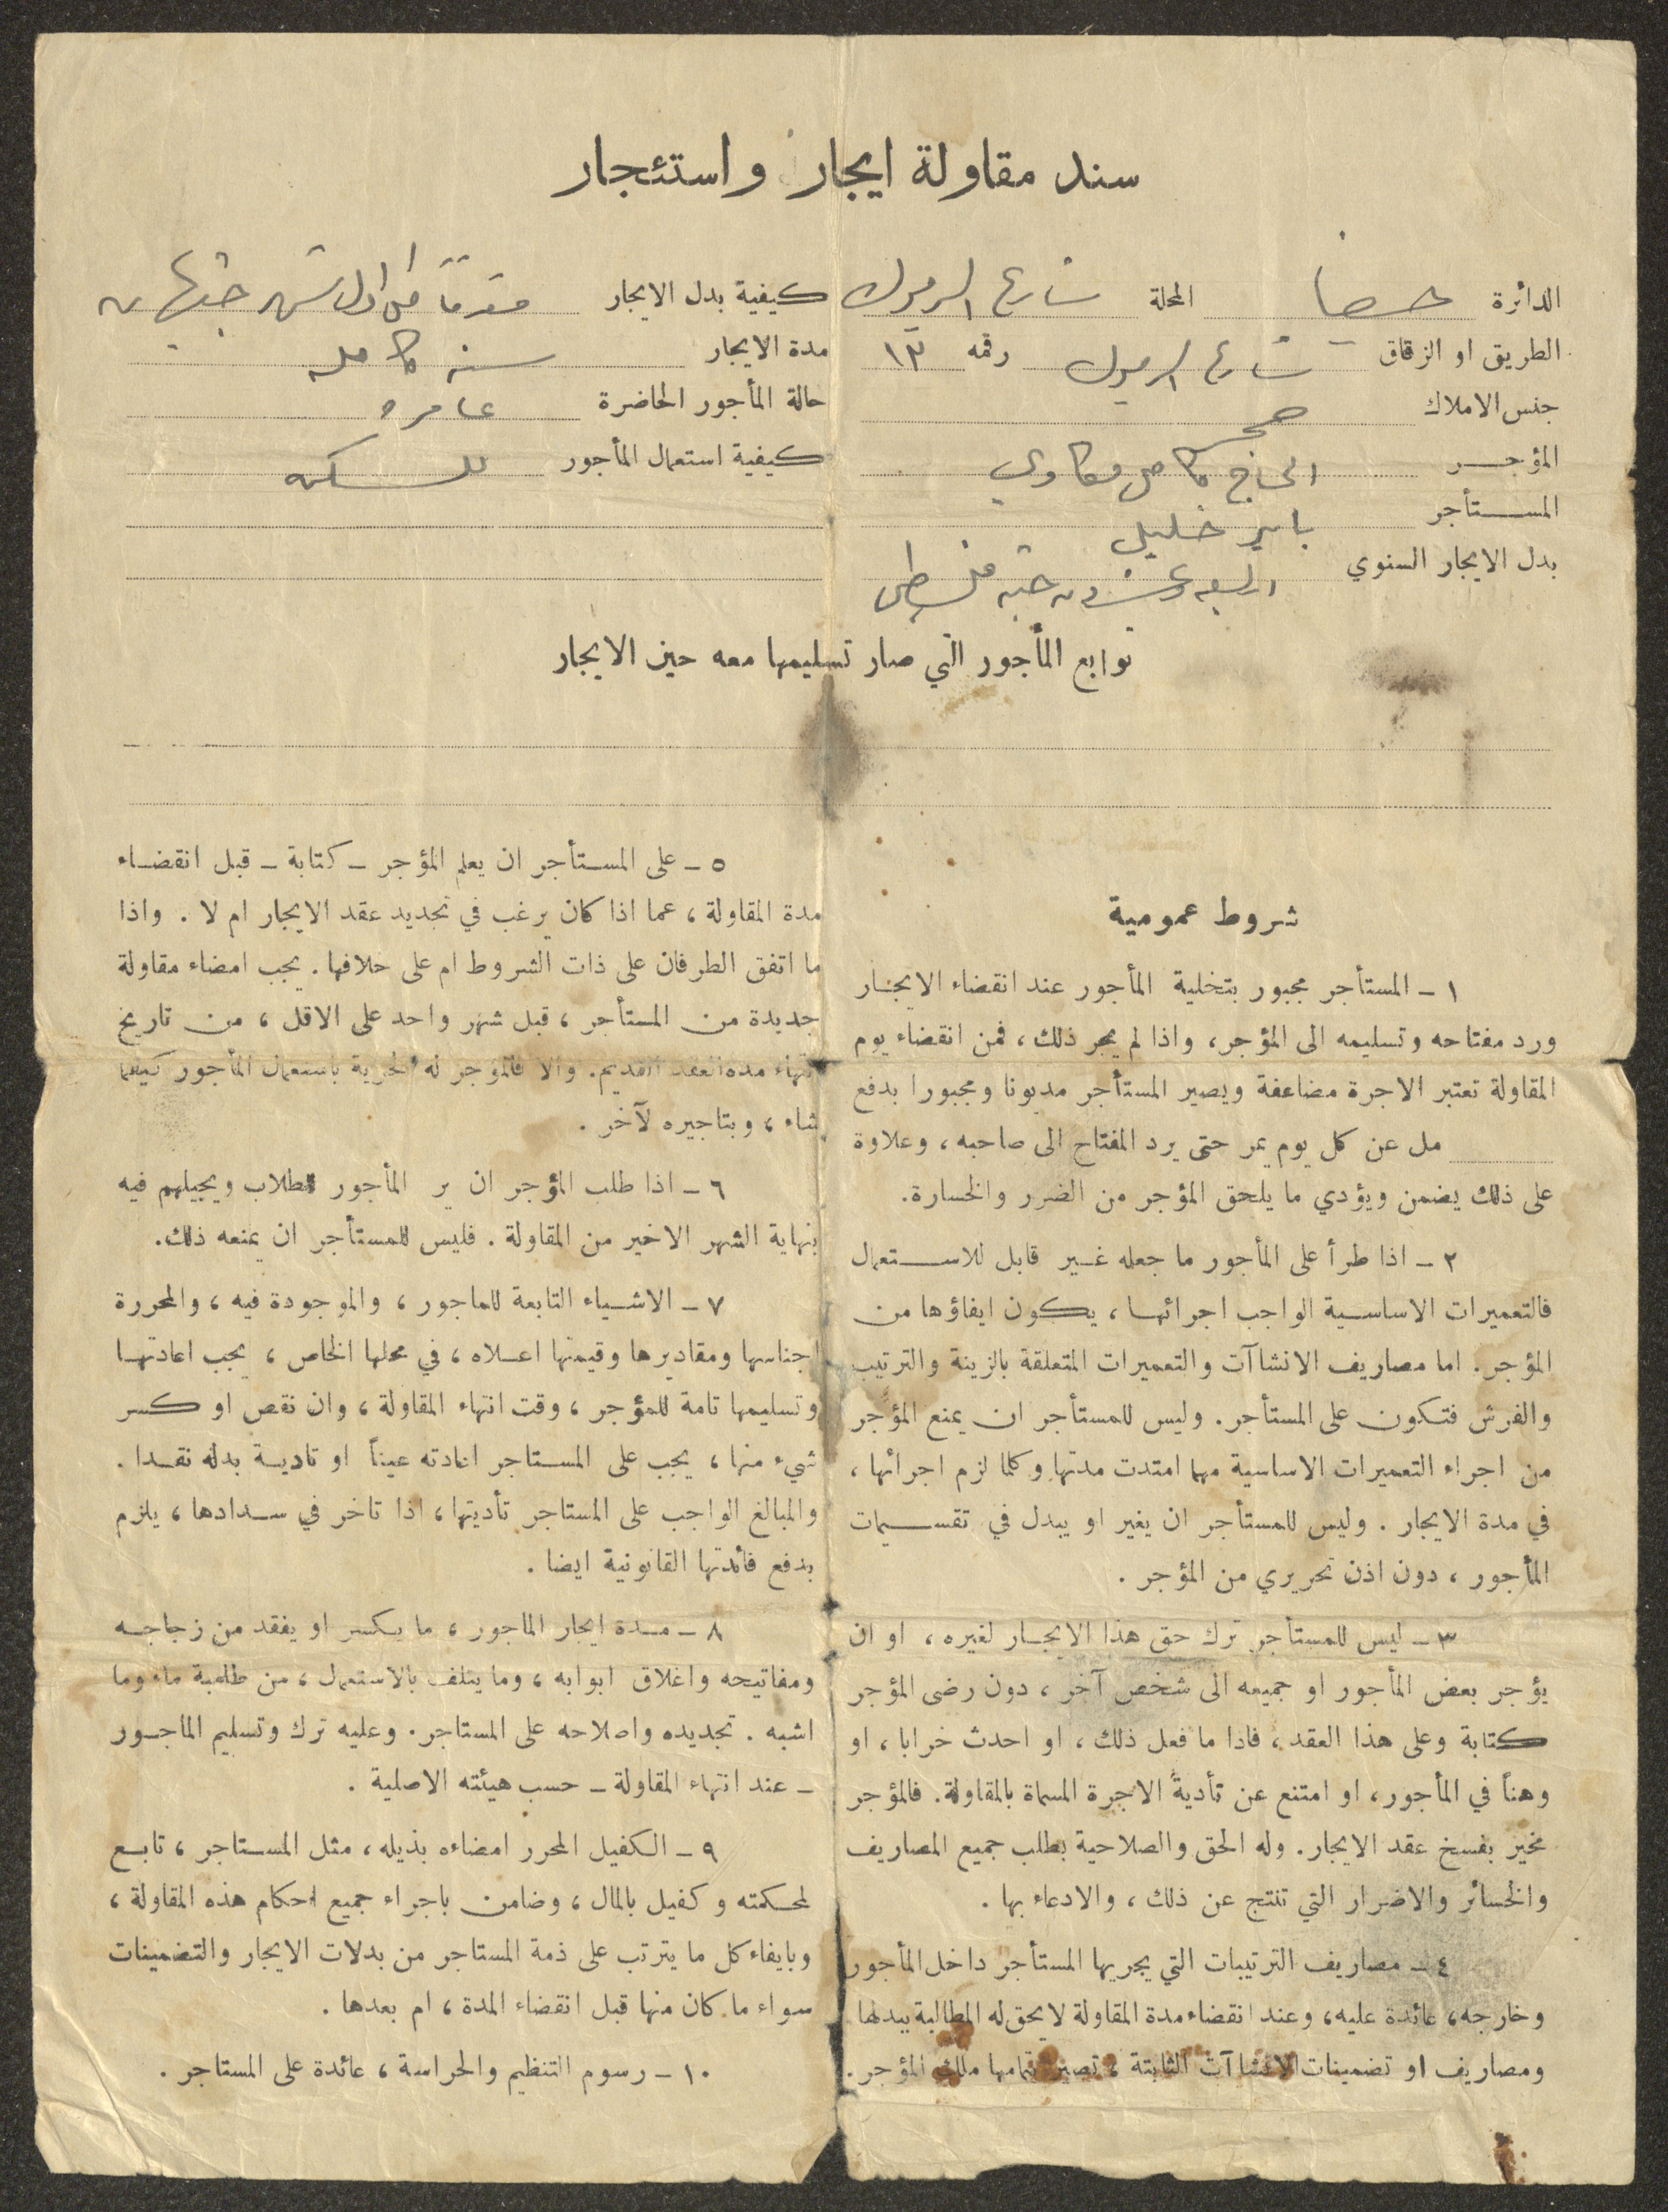 سند مقاولة ايجار واستئجار
الدائرة حيفا المحلة شارع اليرموك
الطريق او الزقاق شارع اليرموك رقمه ١٣
جنس الاملاك
المؤجر الحاج كامل
المستأجر خليل
بدل الايجار السنوي اربعه وعشرون جنيه فلسطيني
كيفية بدل الايجار مقدما كل اول شهر جنيهان
مدة الايجار سنه كامله
حالة المأجور الحاضرة عامره
كيفية استعمال المأجور للسكنه
توابع المأجور التي صار تسليمها معه حين الايجار
شروط عمومية
١ - المستأجر مجبور بتخلية المأجور عند انقضاء الايجار
ورد مفتاحه وتسليمه الى المؤجر، واذا لم يجر ذلك، فمن انقضاء يوم
المقاولة تعتبر الاجرة مضاعفة ويصير المستأجر مديونا ومجبورا بدفع
مل عن كل يوم يمر حتى يرد المفتاح الى صاحبه، وعلاوة
على ذلك يضمن ويؤدي ما يلحق المؤجر من الضرر والخسارة.
٢ - اذا طرأ على المأجور ما جعله غير قابل للاستعمال
فالتعميرات الاساسية الواجب اجرائها، يكون ايفاؤها من
المؤجر. اما مصاريف الانشاآت والتعميرات المتعلقة بالزينة والترتيب
والفرش فتكون على المستأجر. وليس للمستأجر ان يمنع المؤجر
من اجراء التعميرات الاساسية مهما امتدت مدتها وكلما لزم اجرائها،
في مدة الايجار. وليس للمستأجر ان يغير او يبدل في تقسيمات
المأجور، دون اذن تحريري من المؤجر.
٣ - ليس للمستأجر ترك حق هذا الايجار لغيره، او ان
يؤجر بعض المأجور او جميعه الى شخص آخر، دون رضى المؤجر
كتابة وعلى هذا العقد، فاذا ما فعل ذلك، او احدث خرابا، او
وهناً في المأجور، او امتنع عن تأدية الاجرة المسماة بالمقاولة. فالمؤجر
مخير بفسخ عقد الايجار. وله الحق والصلاحية بطلب جميع المصاريف
والخسائر والاضرار التي تنتج عن ذلك، والادعاء بها.
٤ - مصاريف الترتيبات التي يجريها المستأجر داخل المأجور
وخارجه، عائدة عليه، وعند انقضاء مدة المقاولة لا يحق له المطالبة ببدلها
ومصاريف او تضمينات الانشاآت الثابتة، تصير بتمامها ملك المؤجر.
٥ - على المستأجر ان يعلم المؤجر - كتابة - قبل انقضاء
مدة المقاولة، عما اذا كان يرغب في تجديد عقد الايجار ام لا. واذا
ما اتفق الطرفان على ذات الشروط ام على خلافها. يجب امضاء مقاولة
جديدة من المستأجر، قبل شهر واحد على الاقل، من تاريخ
انتهاء مدة العقد القديم. والا فالمؤجر له الحرية باستعمال المأجور كيفما
شاء، وبتاجيره لآخر.
٦ - اذا طلب المؤجر ان ير المأجور لطلاب ويجيلهم فيه
بنهاية الشهر الاخير من المقاولة. فليس للمستأجر ان يمنعه ذلك.
٧ - الاشياء التابعة للماجور، والموجودة فيه، والمحررة
اجناسها ومقاديرها وقيمتها اعلاه، في محلها الخاص، يجب اعادتها
وتسليمها تامة للمؤجر، وقت انتهاء المقاولة، وان نقص او كسر
شيء منها، يجب على المستاجر اعادته عيناً او تادية بدله نقدا.
والمبالغ الواجب على المستاجر تأديتها، اذا تاخر في سدادها، يلزم
بدفع فائدتها القانونية ايضا.
٨ - مدة ايجار الماجور، ما يكسر او يفقد من زجاجه
ومفاتيحه واغلاق ابوابه، وما يتلف بالاستعمال، من طلمبة ماء وما
اشبه. تجديده واصلاحه على المستاجر. وعليه ترك وتسليم الماجور
- عند انتهاء المقاولة - حسب هيئته الاصلية.
٩ - الكفيل المحرر امضاءه بذيله، مثل المستاجر، تابع
لمحكمته وكفيل بالمال، وضامن باجراء جميع احكام هذه المقاولة،
وبايفاء كل ما يترتب على ذمة المستاجر من بدلات الايجار والتضمينات
سواء ما كان منها قبل انقضاء المدة، ام بعدها.
١٠ - رسوم التنظيم والحراسة، عائدة على المستاجر.